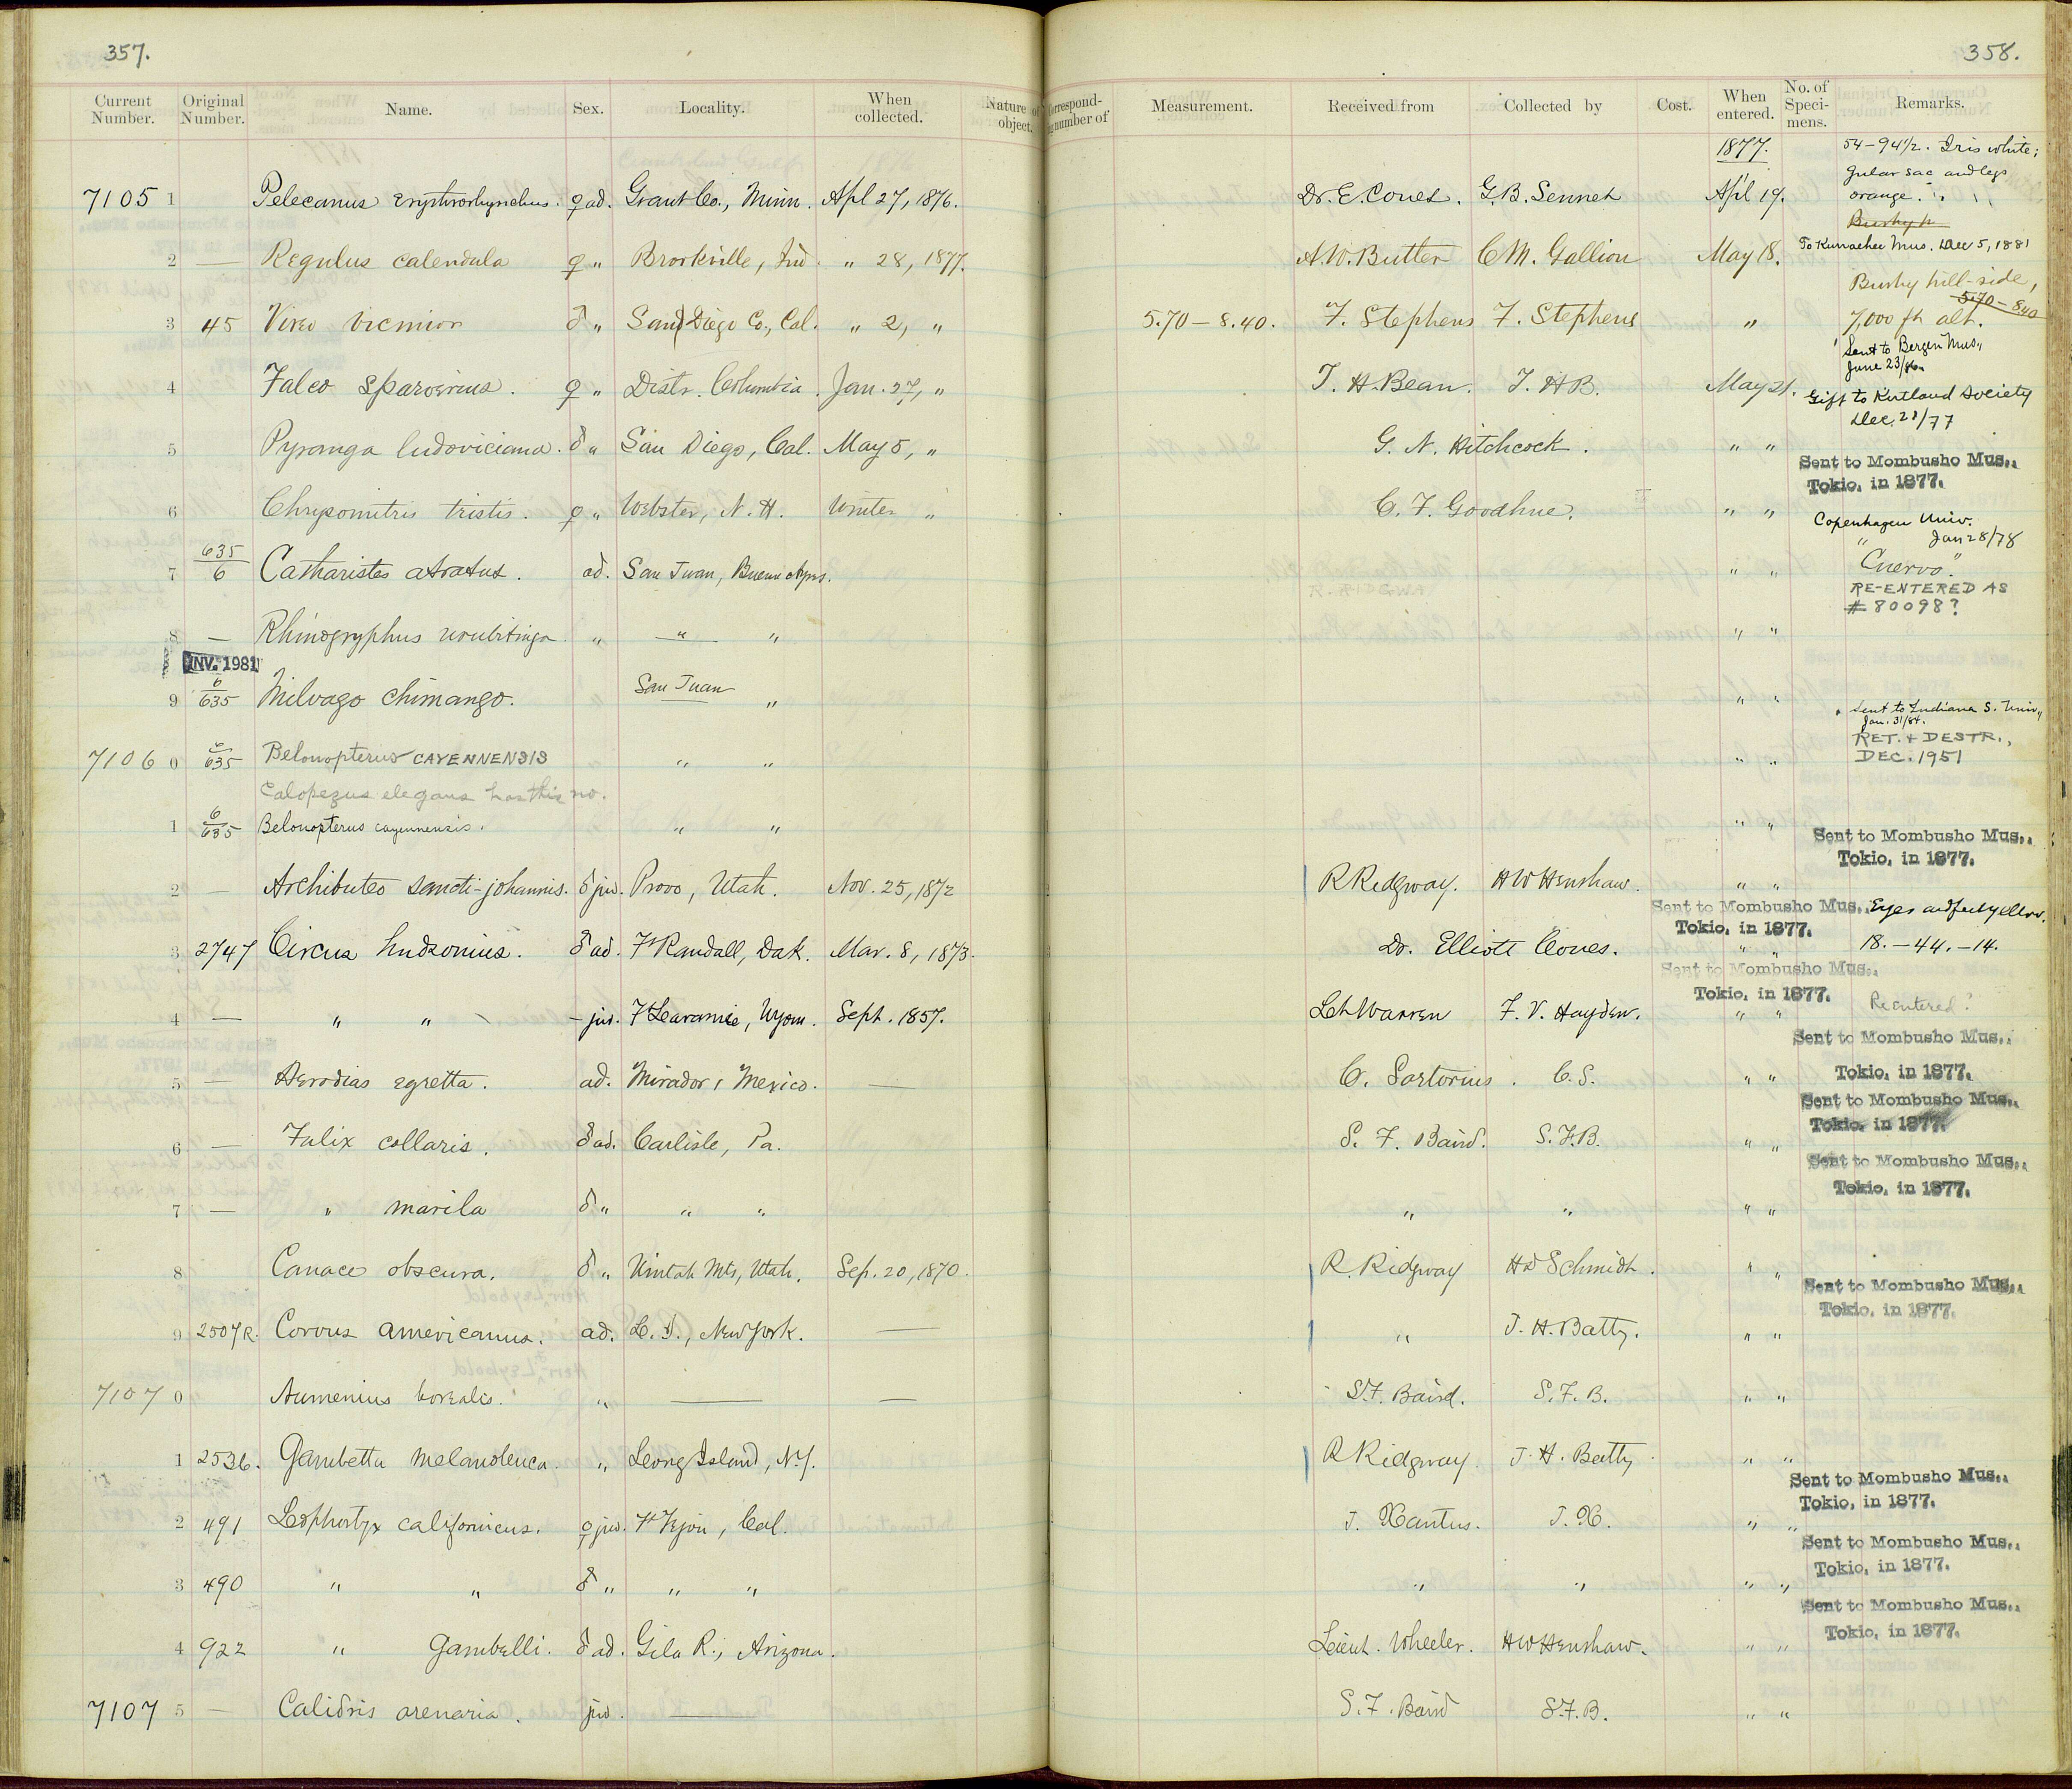 357.
358.
Current Number. Original Number. Name. Sex. Locality. When collected. Nature of object.
Correspond- number of Measurement. Received from Collected by Cost. When entered. No. of Speci- mens. Remarks.
1877. 54 – 94 1/2. Iris white;
gular sac and legs
7105 1 Pelecanus erythrorhynchus. ♀ ad. Grant Co., Minn. Apl 27, 1876. Dr. E. Coues. G.B. Sennet Apl 19. orange.
2 — Regulus calendula ♀ " Brookville, Ind. " 28, 1877. A.W. Butler C.M. Gallion May 18. To Kurrachee Mus. Dec 5, 1881
Bushy hill-side,
5.70 – 8.40
3 45 Vireo vicinior ♂ " San Diego Co., Cal. " 2, " 5.70 – 8.40. F. Stephens F. Stephens " 7,000 ft alt.
Sent to Bergen Mus.,
June 23/86.
4 Falco sparverius. ♀ " Distr. Columbia. Jan. 27, " T. H. Bean. T. H B. May 21. Gift to Kirtland Society
Dec. 28/77
5 Pyranga ludoviciana. ♂ " San Diego, Cal. May 5, " G. N. Hitchcock. " " Sent to Mombusho Mus.,
Tokio, in 1877.
6 Chrysomitris tristis. ♀ " Webster, N. H. Winter " C. F. Goodhue. " " Copenhagen Univ.
" Jan 28/78
7 635/6 Catharistes atratus. ad. San Juan, Buenos Ayres. " " "Cuervo."
RE-ENTERED AS
# 80098?
8 — Rhinogryphus urubitinga. " " " " "
INV. 1981
9 6/635 Milvago chimango. " San Juan " " "
Sent to Indiana S. Univ.,
Jan. 31/84.
RET. & DESTR.,
7106 0 6/635 Belonopterus CAYENNENSIS " " " " DEC. 1951
Calopezus elegans has this no.
1 6/635 Belonopterus cayennensis. " " " " Sent to Mombusho Mus.,
Tokio, in 1877.
2 — Archibuteo sancti-johannis. ♂ juv. Provo, Utah. Nov. 25, 1872 R Ridgway. H W Henshaw. " "
Sent to Mombusho Mus., Eyes and feet yellow.
Tokio, in 1877.
3 2747 Circus hudsonius. ♂ ad. Ft Randall, Dak. Mar. 8, 1873. Dr. Elliott Coues. " " 18. – 44. – 14.
Sent to Mombusho Mus.,
Tokio, in 1877.
4 — " " – juv. Ft Laramie, Wyom. Sept. 1857. Lt Warren F. V. Hayden. " " Reentered?
Sent to Mombusho Mus.,
5 — Herodias egretta. ad. Mirador, Mexico. — C. Sartorius. C. S. " " Tokio, in 1877.
Sent to Mombusho Mus.,
Tokio, in 1877.
6 — Fulix collaris. ♂ ad. Carlisle, Pa. S. F. Baird. S. F. B. " "
Sent to Mombusho Mus.,
Tokio, in 1877.
7 — " marila ♂ " " " " " " "
8 Canace obscura. ♂ " Uintah Mts, Utah. Sep. 20, 1870. R. Ridgway H D Schmidt. " "
Sent to Mombusho Mus.,
Tokio, in 1877.
9 2507R. Corvus americanus. ad. L. I., New York. — " J. H. Batty. " "
7107 0 Numenius borealis. " — — S.F. Baird. S. F. B. " "
1 2536. Gambetta melanoleuca. " Long Island, N.Y. R Ridgway. J. H. Batty. " "
Sent to Mombusho Mus.,
Tokio, in 1877.
2 491 Lophortyx californicus. ♀ juv. Ft Tejon, Cal. J. Xantus. J. X. " "
Sent to Mombusho Mus.,
Tokio, in 1877.
3 490 " " ♂ " " " " " " "
Sent to Mombusho Mus.,
Tokio, in 1877.
4 922 " Gambelli. ♂ ad. Gila R., Arizona. Lieut. Wheeler. H W Henshaw. " "
7107 5 — Calidris arenaria. juv. — S. F. Baird S. F. B. " "